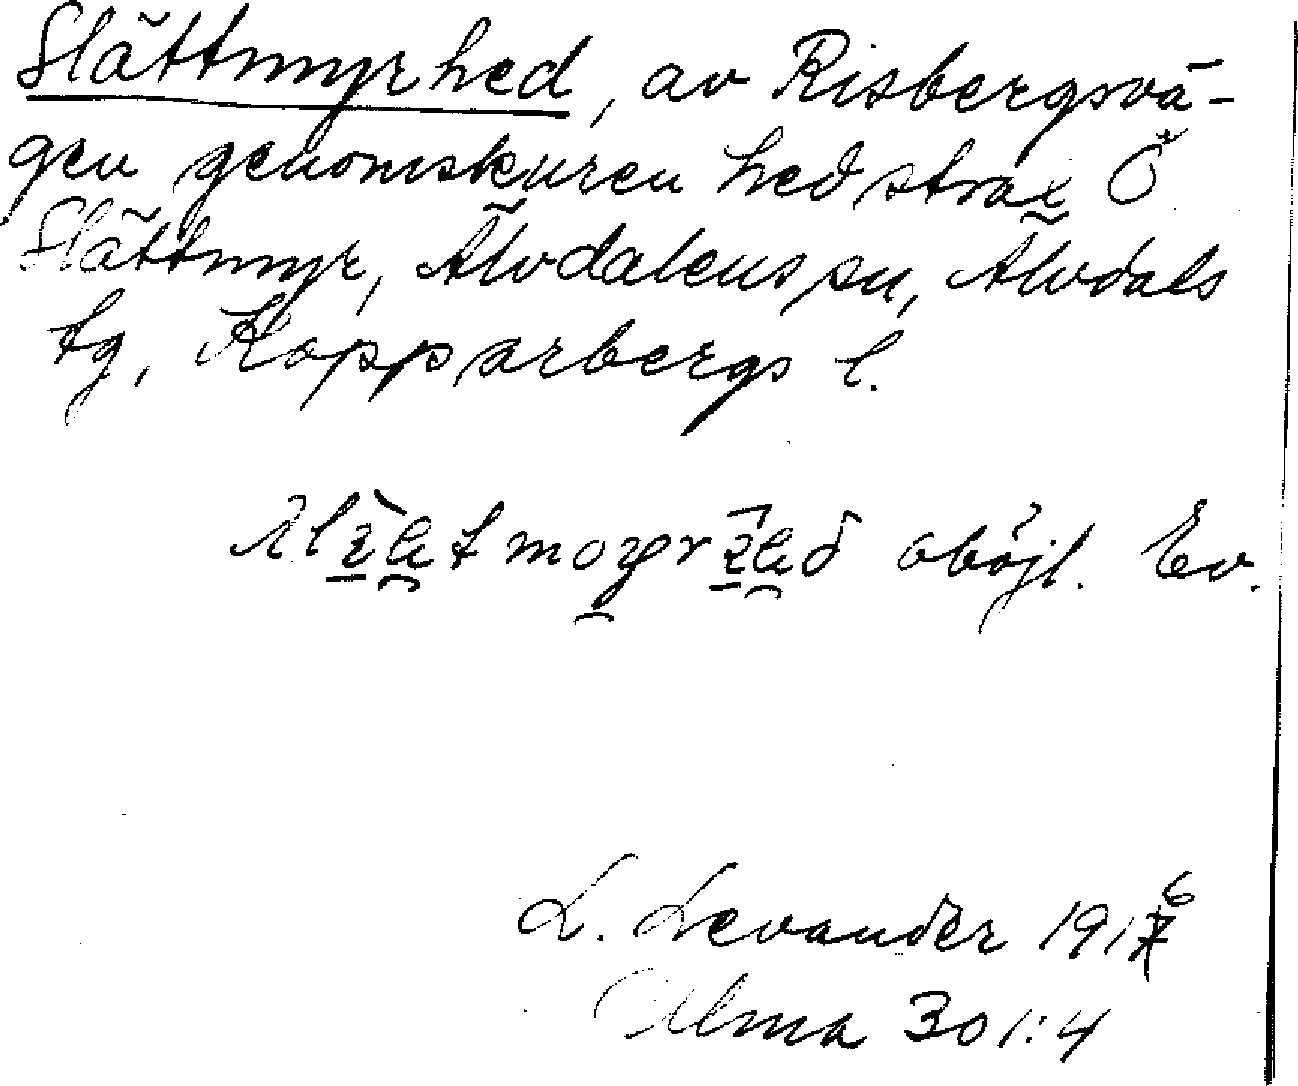 Slättmyrhed, av Risbergsvä-
gen genomskuren hed strax Ö
Slättmyr, Älvdalens sn, Älvdals
tg, Kopparbergs l.
oböjl. Ev.
L. Levander 1916
Ulma 301:4